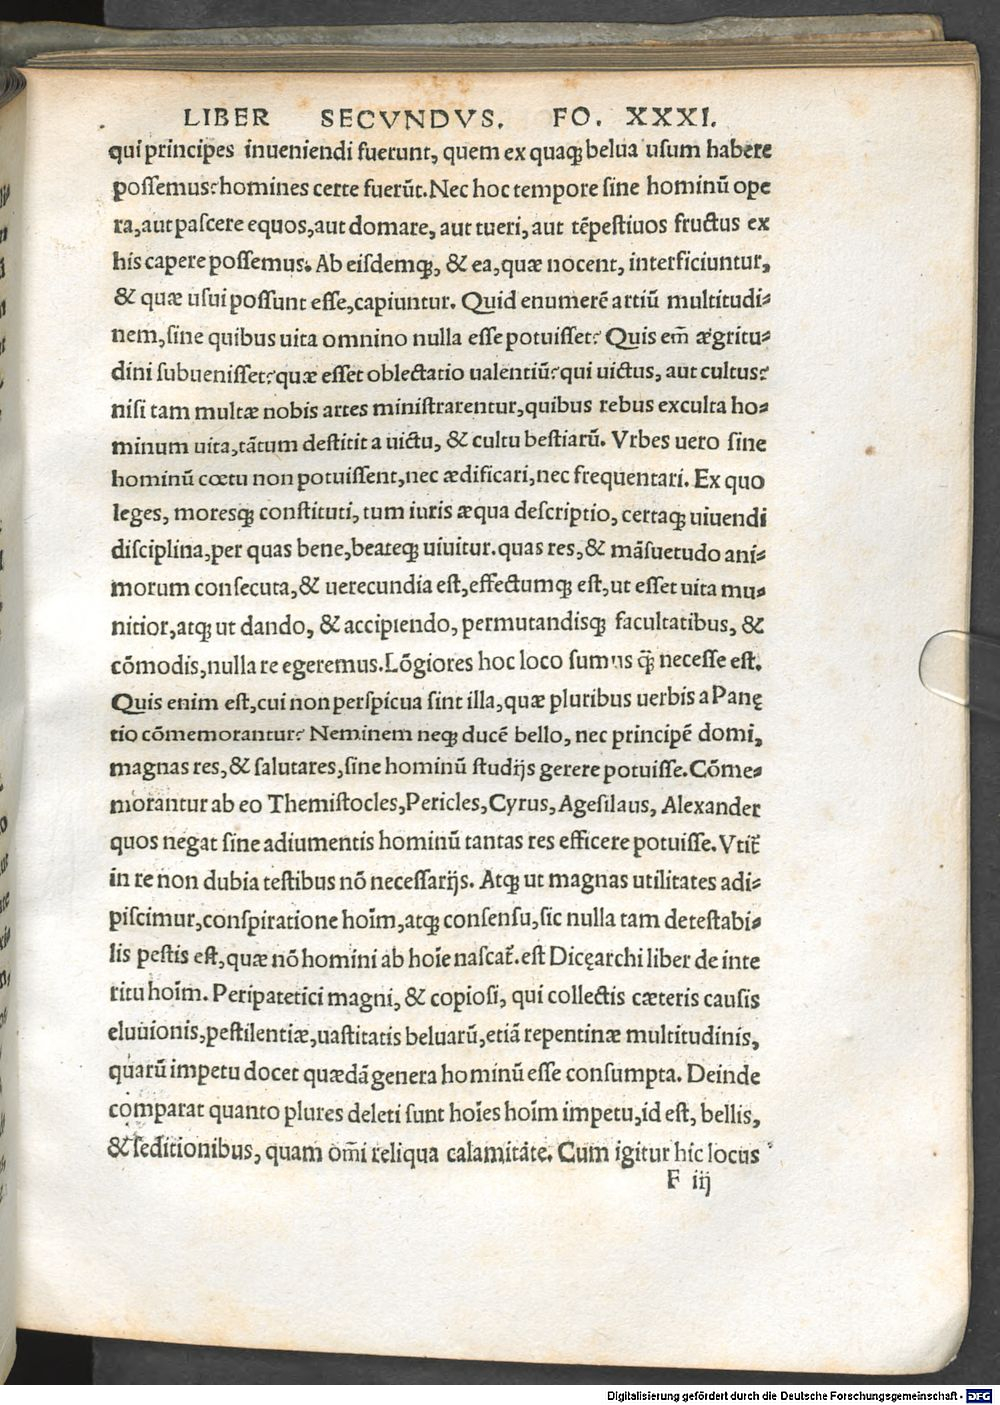 LIBER SECVNDVS. FO. XXXI.
qui principes inueniendi fuerunt, quem ex quaqꝫ belua usum habere
possemus? homines certe fuerūt. Nec hoc tempore sine hominū ope
ra, aut pascere equos, aut domare, aut tueri, aut tēpestiuos fructus ex
his capere possemus. Ab eisdemqꝫ, & ea, quæ nocent, interficiuntur,
& quæ usui possunt esse, capiuntur. Quid enumerē artiū multitudi-
nem, sine quibus uita omnino nulla esse potuisset? Quis em̄ ægritu-
dini subuenisset? quæ esset oblectatio ualentiū? qui uictus, aut cultus?
nisi tam multæ nobis artes ministrarentur, quibus rebus exculta ho-
minum uita, tātum destitit a uictu, & cultu bestiarū. Vrbes uero sine
hominū cœtu non potuissent, nec ædificari, nec frequentari. Ex quo
leges, moresqꝫ constituti, tum iuris æqua descriptio, certaqꝫ uiuendi
disciplina, per quas bene, beateqꝫ uiuitur. quas res, & māsuetudo ani-
morum consecuta, & uerecundia est, effectumqꝫ est, ut esset uita mu-
nitior, atqꝫ ut dando, & accipiendo, permutandisqꝫ facultatibus, &
cōmodis, nulla re egeremus. Lōgiores hoc loco sumus q̄ꝫ necesse est.
Quis enim est, cui non perspicua sint illa, quæ pluribus uerbis a Panę
tio cōmemorantur? Neminem neqꝫ ducē bello, nec principē domi,
magnas res, & salutares, sine hominū studijs gerere potuisse. Cōme-
morantur ab eo Themistocles, Pericles, Cyrus, Agesilaus, Alexander
quos negat sine adiumentis hominū tantas res efficere potuisse. Vtit̄
in re non dubia testibus nō necessarijs. Atqꝫ ut magnas utilitates adi-
piscimur, conspiratione hoīm, atqꝫ consensu, sic nulla tam detestabi-
lis pestis est, quæ nō homini ab hoīe nascat̄. est Dicęarchi liber de inte
ritu hoīm. Peripatetici magni, & copiosi, qui collectis cæteris causis
eluuionis, pestilentiæ, uastitatis beluarū, etiā repentinæ multitudinis,
quarū impetu docet quædā genera hominū esse consumpta. Deinde
comparat quanto plures deleti sunt hoīes hoīm impetu, id est, bellis,
& seditionibus, quam om̄i reliqua calamitate. Cum igitur hic locus
F iij
Digitalisierung gefördert durch die Deutsche Forschungsgemeinschaft - DFG